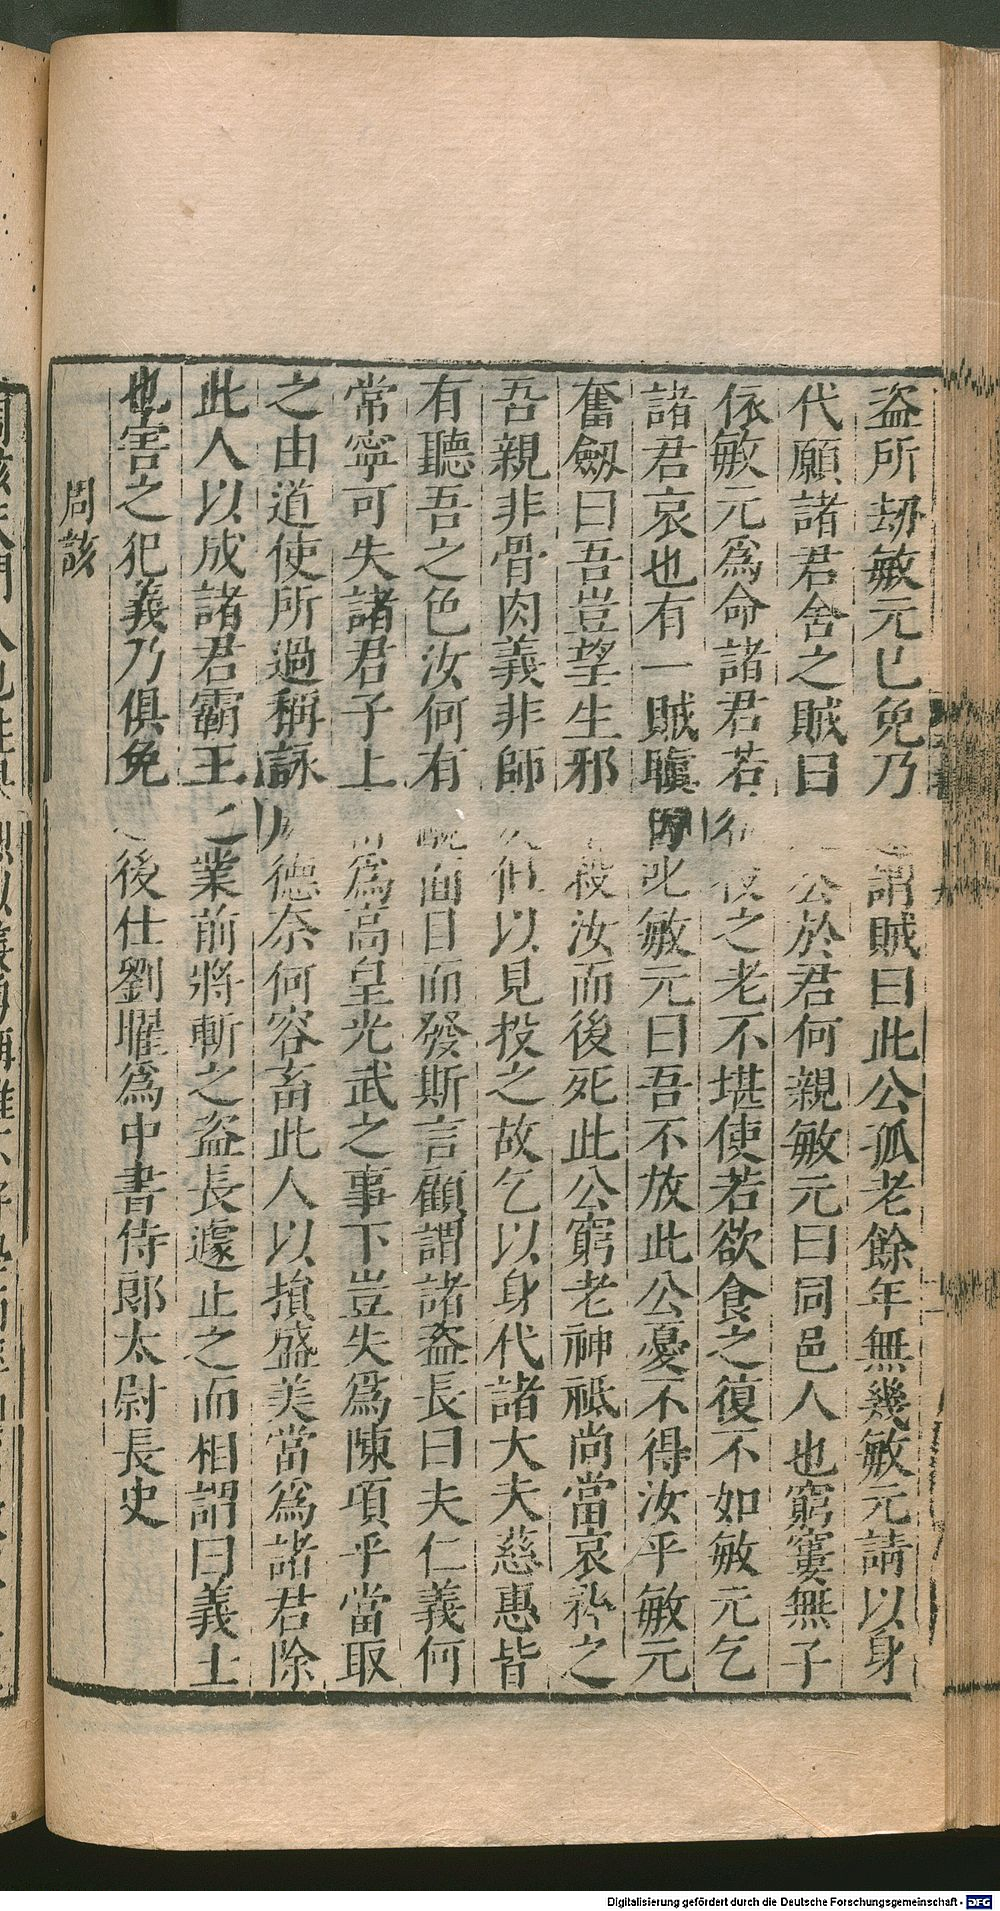 盜所劫敏元已免乃謂賊曰此公孤老餘年無幾敏元請以身
代願諸君舍之賊曰公於君何親敏元曰同邑人也窮窶無子
依敏元爲命諸君若之老不堪使若欲食之復不如敏元乞
諸君哀也有一賊瞋叱敏元曰吾不放此公憂不得汝乎敏元
奮劒曰吾豈望生邪殺汝而後死此公窮老神祇尚當哀矜之
吾親非骨肉義非師但以見投之故乞以身代諸大夫慈惠皆
有聽吾之色汝何有面目而發斯言顧謂諸盜長曰夫仁義何
常寧可失諸君子上爲高皇光武之事下豈失爲陳項乎當取
之由道使所過稱詠德奈何容畜此人以損盛美當爲諸君除
此人以成諸君霸王之業前將斬之盜長遽止之而相謂曰義士
也害之犯義乃俱免後仕劉曜爲中書侍郎太尉長史
周該
Digitalisierung gefördert durch die Deutsche Forschungsgemeinschaft - DFG